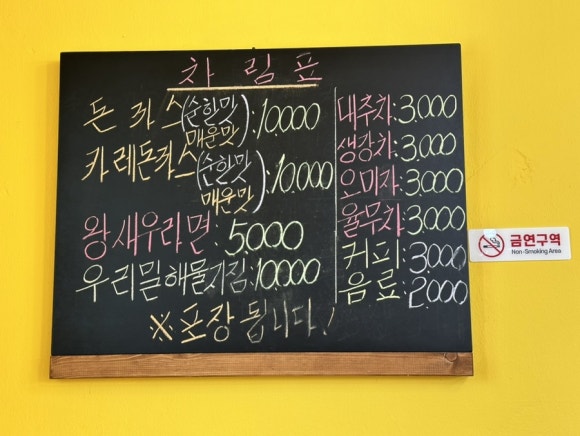 차림표
돈까스(순한맛 매운맛):10.000
카레돈까스(순한맛 매운맛):10.000
왕새우라면:5000
우리밀해물지짐:10.000
※포장됩니다!
대추차:3.000
생강차:3.000
오미자:3.000
율무차:3.000
커피:3.000
음료:2.000
금연구역
Non-Smoking Area